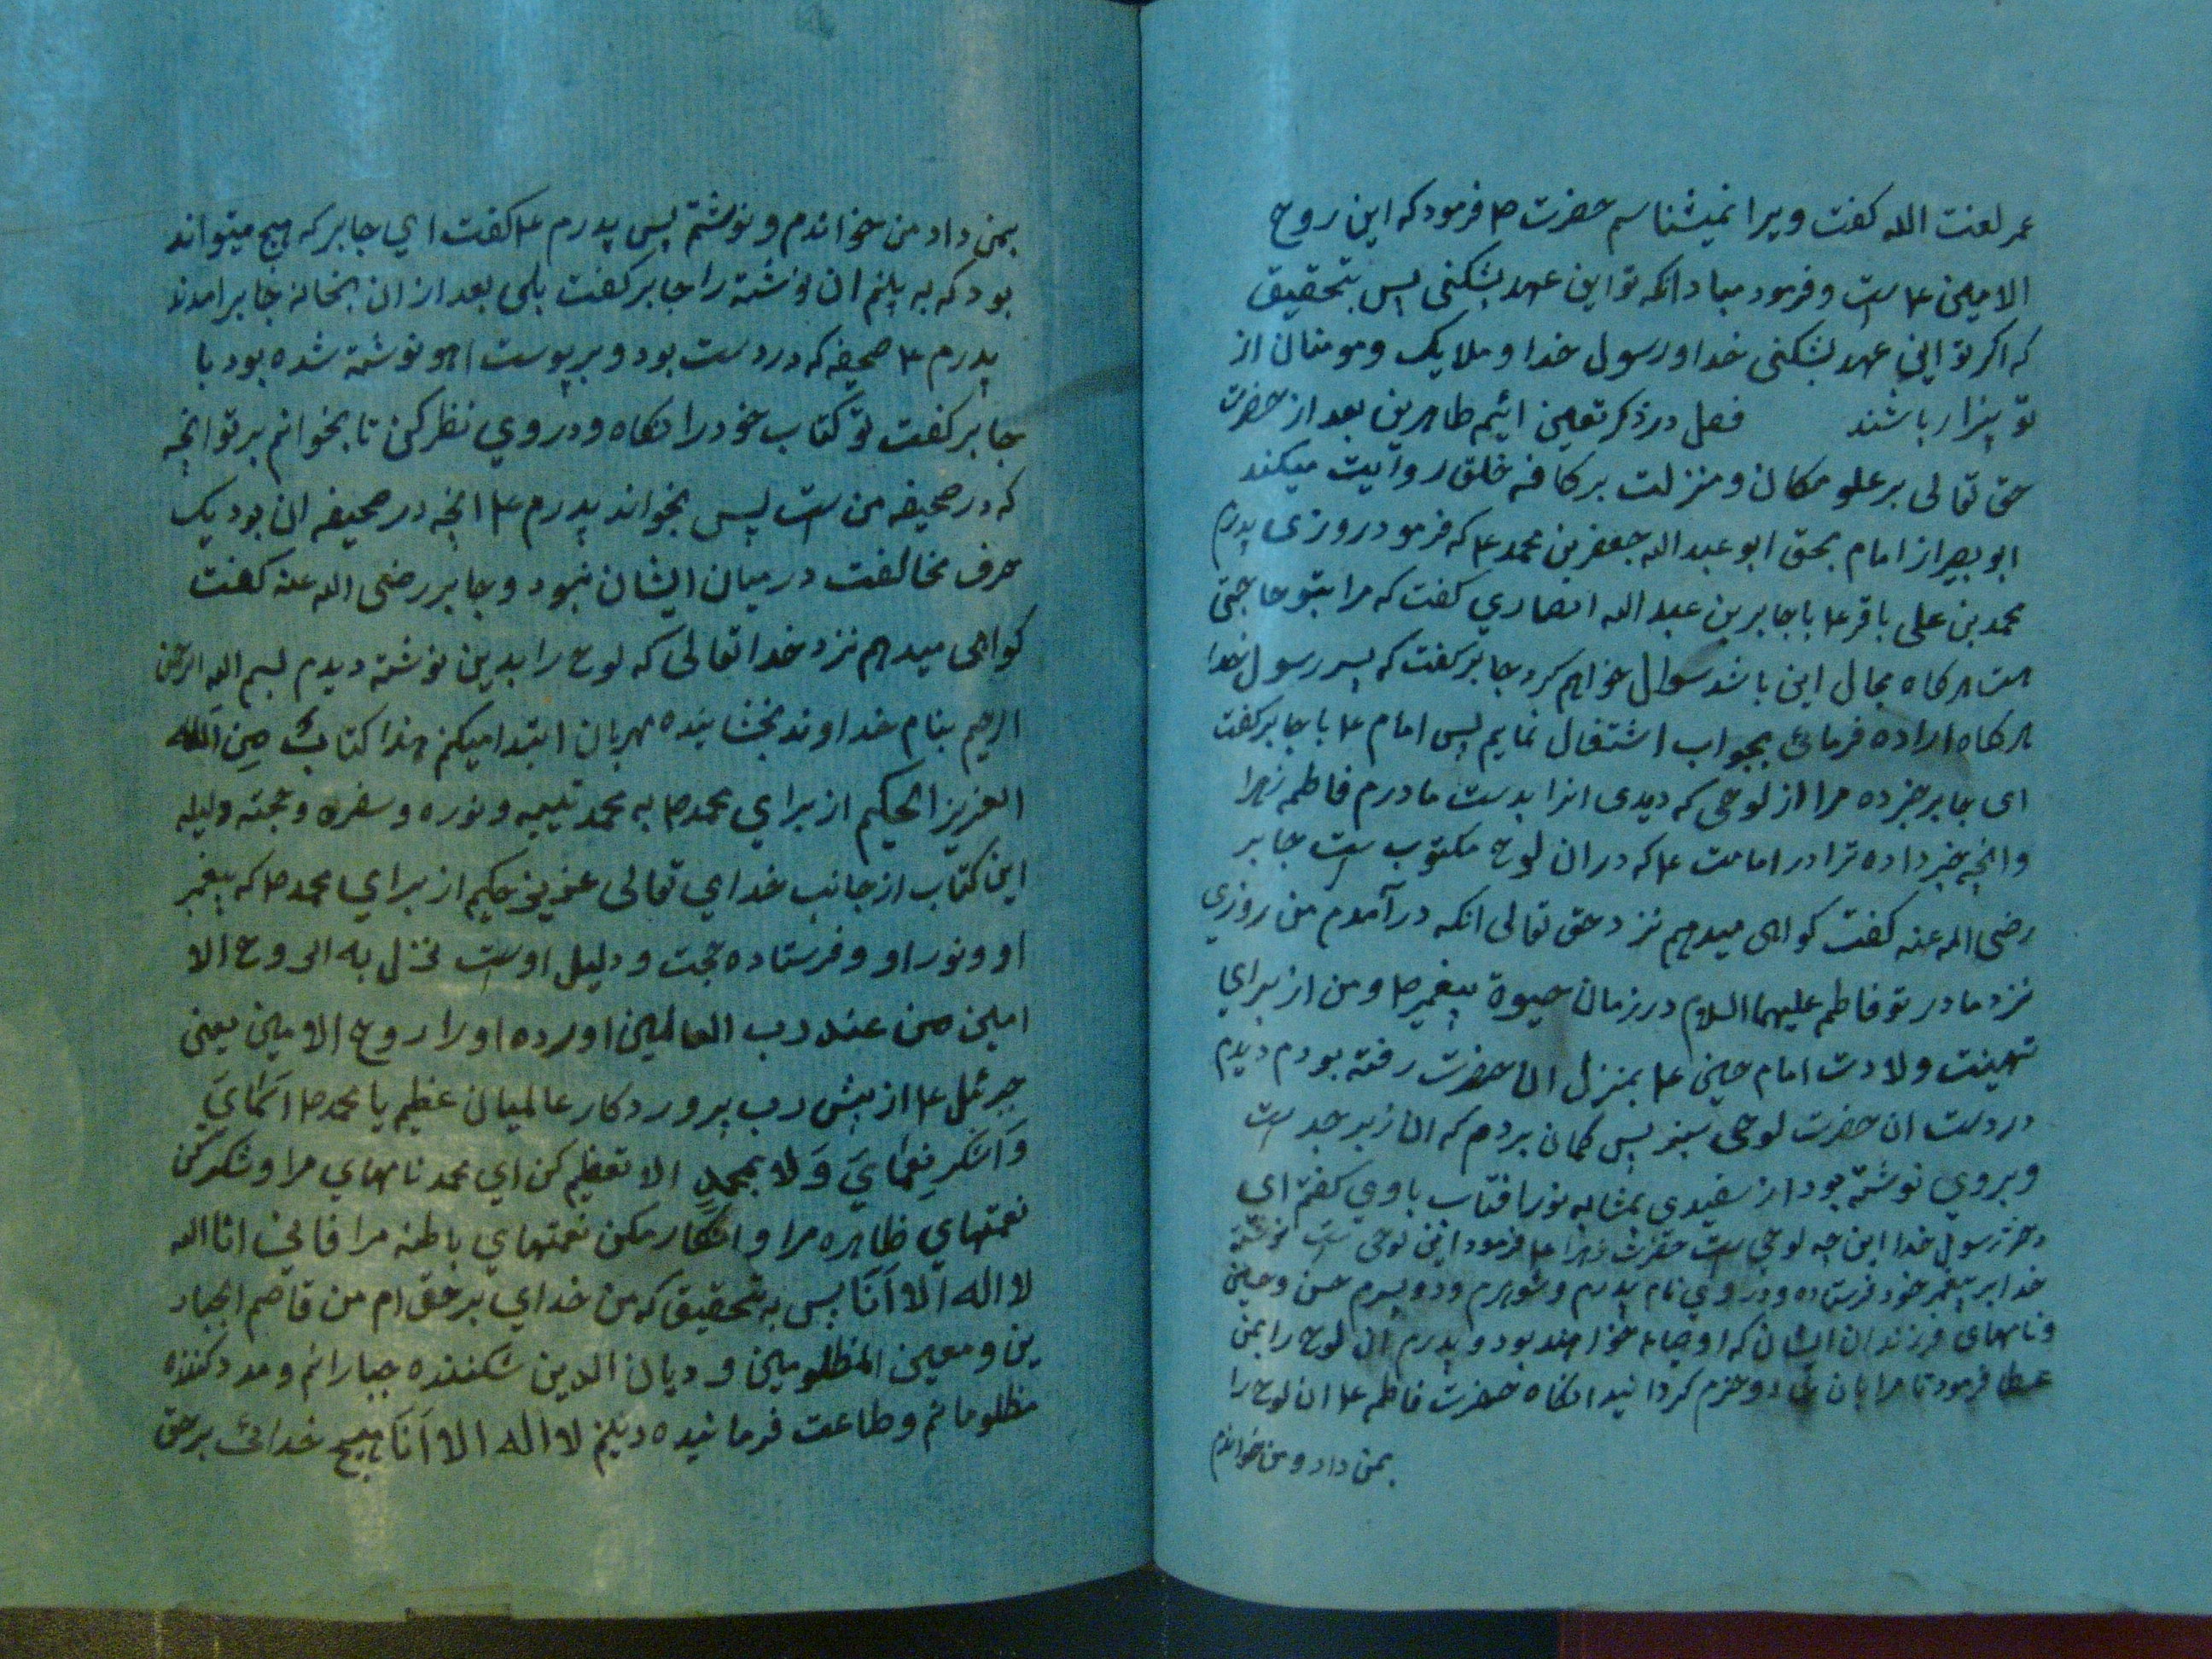 عمر لعنت الله کفت ویرا نمیشناسم حضرت ص فرمود که این روح
الامین ع است و فرمود مبادا که تو این عهد بشکنی پس بتحقیق
که اکر تو این عهد بشکنی خدا و رسول خدا و ملایک و مومنان از
تو بیزار باشند فصل در ذکر تعین ائیم طاهرین بعد از حضرت
حق تعالی بر علو مکان و منزلت بر کافه خلق روایت میکند
ابو بصیر از امام بحق ابو عبد الله جعفر بن محمد ع که فرمود روزی پدرم
محمد بن علی باقر ع با جابر بن عبد الله انصاري کفت که مرا بتو حاجتی
است هرکاه مجال این باشد سوال خواهم کرد جابر کفت که پسر رسول خدا
هرکاه اراده فرمائی بجواب اشتغال نمایم پس امام ع با جابر کفت
ای جابر خبر ده مرا از لوحی که دیدی انرا بدست مادرم فاطمه زهرا
وانچه خبر داده ترا در امامت ع که در ان لوح مکتوب است جابر
رضی الله عنه کفت کواهی میدهم نزد حق تعالی انکه درآمدم من روزي
نزد مادر تو فاطمه علیهما السلام در زمان حیوة پیغمبر ص و من از براي
تهنیت ولادت امام حسین ع بمنزل ان حضرت رفته بودم دیدم
در دست ان حضرت لوحی سبز پس کمان بردم که ان از زبرجد است
و بروي نوشته بود از سفیدی بمثابه نور افتاب با وي کفتم ای
دختر رسول خدا این چه لوحی است حضرت زهرا ع فرمود این لوحی است نوشته
خدا بر پیغمبر خود فرستاده و در وي نام پدرم و شوهرم و دو پسرم حسن و حسین
و نامهای فرزندان ایشان که اوصیاء خواهند بود و پدرم ان لوح را بمن
عطا فرمود تا مرا بان شاد و خرم کردانید انکاه حضرت فاطمه ع ان لوح را
بمن داد و من خواندم
بمن داد من خواندم و نوشتم پس پدرم ع کفت اي جابر که هیچ میتواند
بود که به بینم ان نوشته را جابر کفت بلی بعد از ان بخانه جابر امدند
پدرم ع صحیفه که در دست بود و بر پوست اهو نوشته شده بود با
جابر کفت تو کتاب خود را نکاه و در وي نظر کن تا بخوانم بر تو انچه
که در صحیفه من است پس بخواند پدرم ع انچه در صحیفه ان بود یک
حرف مخالفت در میان ایشان نبود و جابر رضی الله عنه کفت
کواهی میدهم نزد خدا تعالی که لوح را بدین نوشته دیدم بسم الله الرحمن
الرحیم بنام خداوند بخشاینده مهربان ابتدا میکنم هذا کتابٌ مِنَ اَلله
العزیز الحکیم از براي محمد ص به محمد نبیه و نوره و سفره و حجته دلیله
این کتاب از جانب خداي تعالی عزیز حکیم از براي محمد ص که پیغمبر
او و نور او و فرستاده حجت و دلیل اوست نزل به الروح الا
امین من عند رب العالمین اورده او را روح الامین یعنی
جبرئل ع از پیش رب پروردکار عالمیان عظیم یا محمد ص اَسمٰایَ
وَاشکر نِعمٰايَ وَلا بمجدِ الا تعظیم کن اي محمد نامهاي مرا و شکر کن
نعمتهاي ظاهره مرا و انکار مکن نعمتهاي باطنه مرا فانی انا الله
لا اله الا اَنَا پس به تحقیق که من خداي بر حق ام من قاصم الجبار
ین و معین المظلومین و دیان الدین شکننده جبارانم و مدد کننده
مظلومانم و طاعت فرمانیده دینم لا اله الا اَنَا هیچ خدائی بر حق